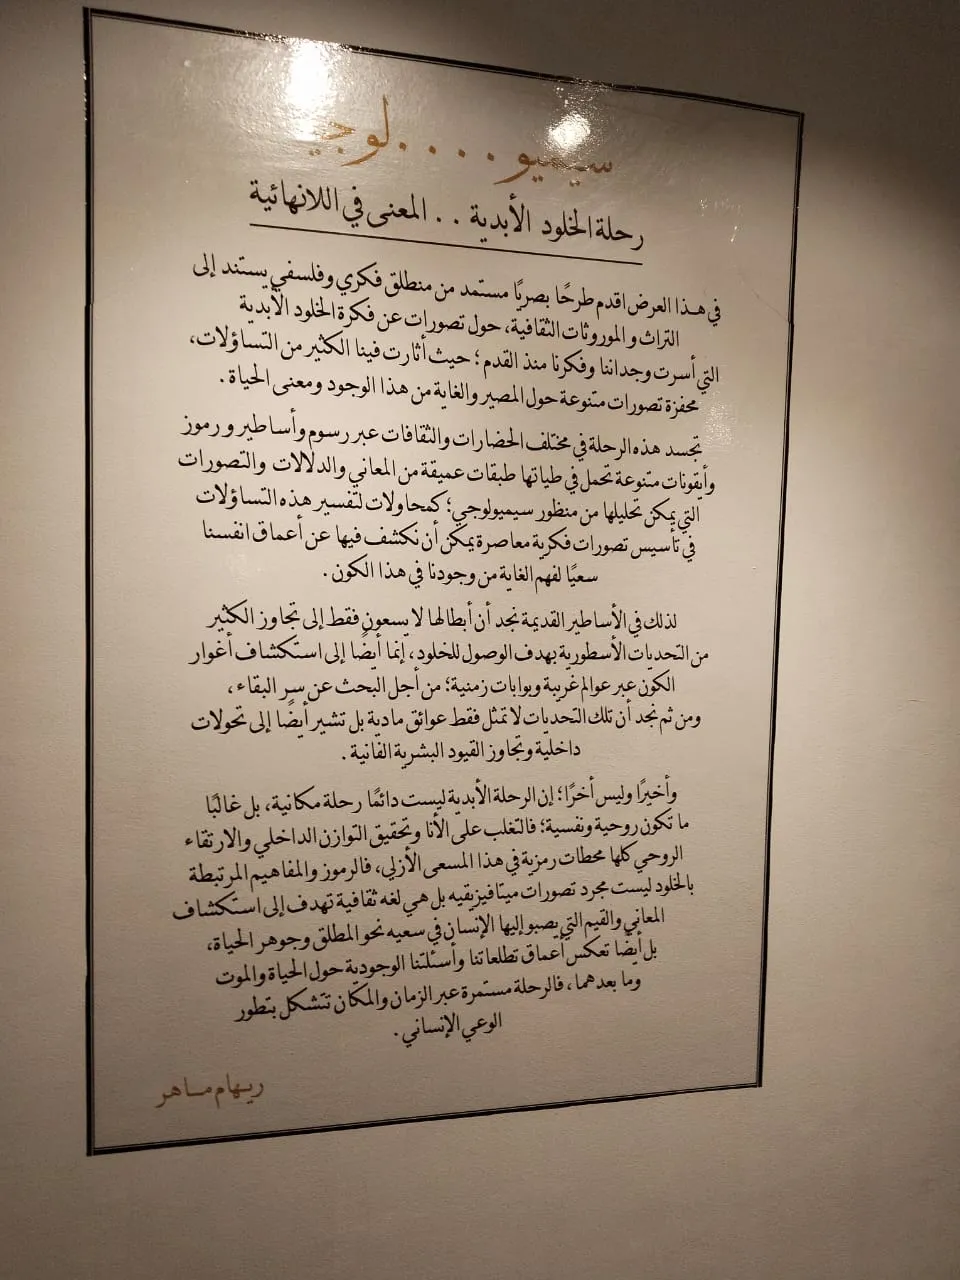 سيميو . . . . لوجي
رحلة الخلود الأبدية . . المعنى في اللانهائية
في هذا العرض اقدم طرحًا بصريًا مستمد من منطلق فكري وفلسفي يستند إلى
التراث والموروثات الثقافية، حول تصورات عن فكرة الخلود الأبدية
التي أسرت وجداننا وفكرنا منذ القدم؛ حيث أثارت فينا الكثير من التساؤلات،
محفزة تصورات متنوعة حول المصير والغاية من هذا الوجود ومعنى الحياة .
تجسد هذه الرحلة في مختلف الحضارات والثقافات عبر رسوم وأساطير ورموز
وأيقونات متنوعة تحمل في طياتها طبقات عميقة من المعاني والدلالات والتصورات
التي يمكن تحليلها من منظور سيميولوجي؛ كمحاولات لتفسير هذه التساؤلات
في تأسيس تصورات فكرية معاصرة يمكن أن نكشف فيها عن أعماق انفسنا
سعيًا لفهم الغاية من وجودنا في هذا الكون .
لذلك في الأساطير القديمة نجد أن أبطالها لا يسعون فقط إلى تجاوز الكثير
من التحديات الأسطورية بهدف الوصول للخلود، إنما أيضًا إلى استكشاف أغوار
الكون عبر عوالم غريبة وبوابات زمنية؛ من أجل البحث عن سر البقاء،
ومن ثم نجد أن تلك التحديات لا تمثل فقط عوائق مادية بل تشير أيضًا إلى تحولات
داخلية وتجاوز القيود البشرية الفانية .
وأخيرًا وليس أخرًا؛ إن الرحلة الأبدية ليست دائمًا رحلة مكانية، بل غالبًا
ما تكون روحية ونفسية؛ فالتغلب على الأنا وتحقيق التوازن الداخلي والارتقاء
الروحي كلها محطات رمزية في هذا المسعى الأزلي، فالرموز والمفاهيم المرتبطة
بالخلود ليست مجرد تصورات ميتافيزيقيه بل هي لغه ثقافية تهدف إلى استكشاف
المعاني والقيم التي يصبو إليها الإنسان في سعيه نحو المطلق وجوهر الحياة،
بل أيضًا تعكس أعماق تطلعاتنا وأسئلتنا الوجودية حول الحياة والموت
وما بعدهما، فالرحلة مستمرة عبر الزمان والمكان تتشكل بتطور
الوعي الإنساني .
ريهام ماهر